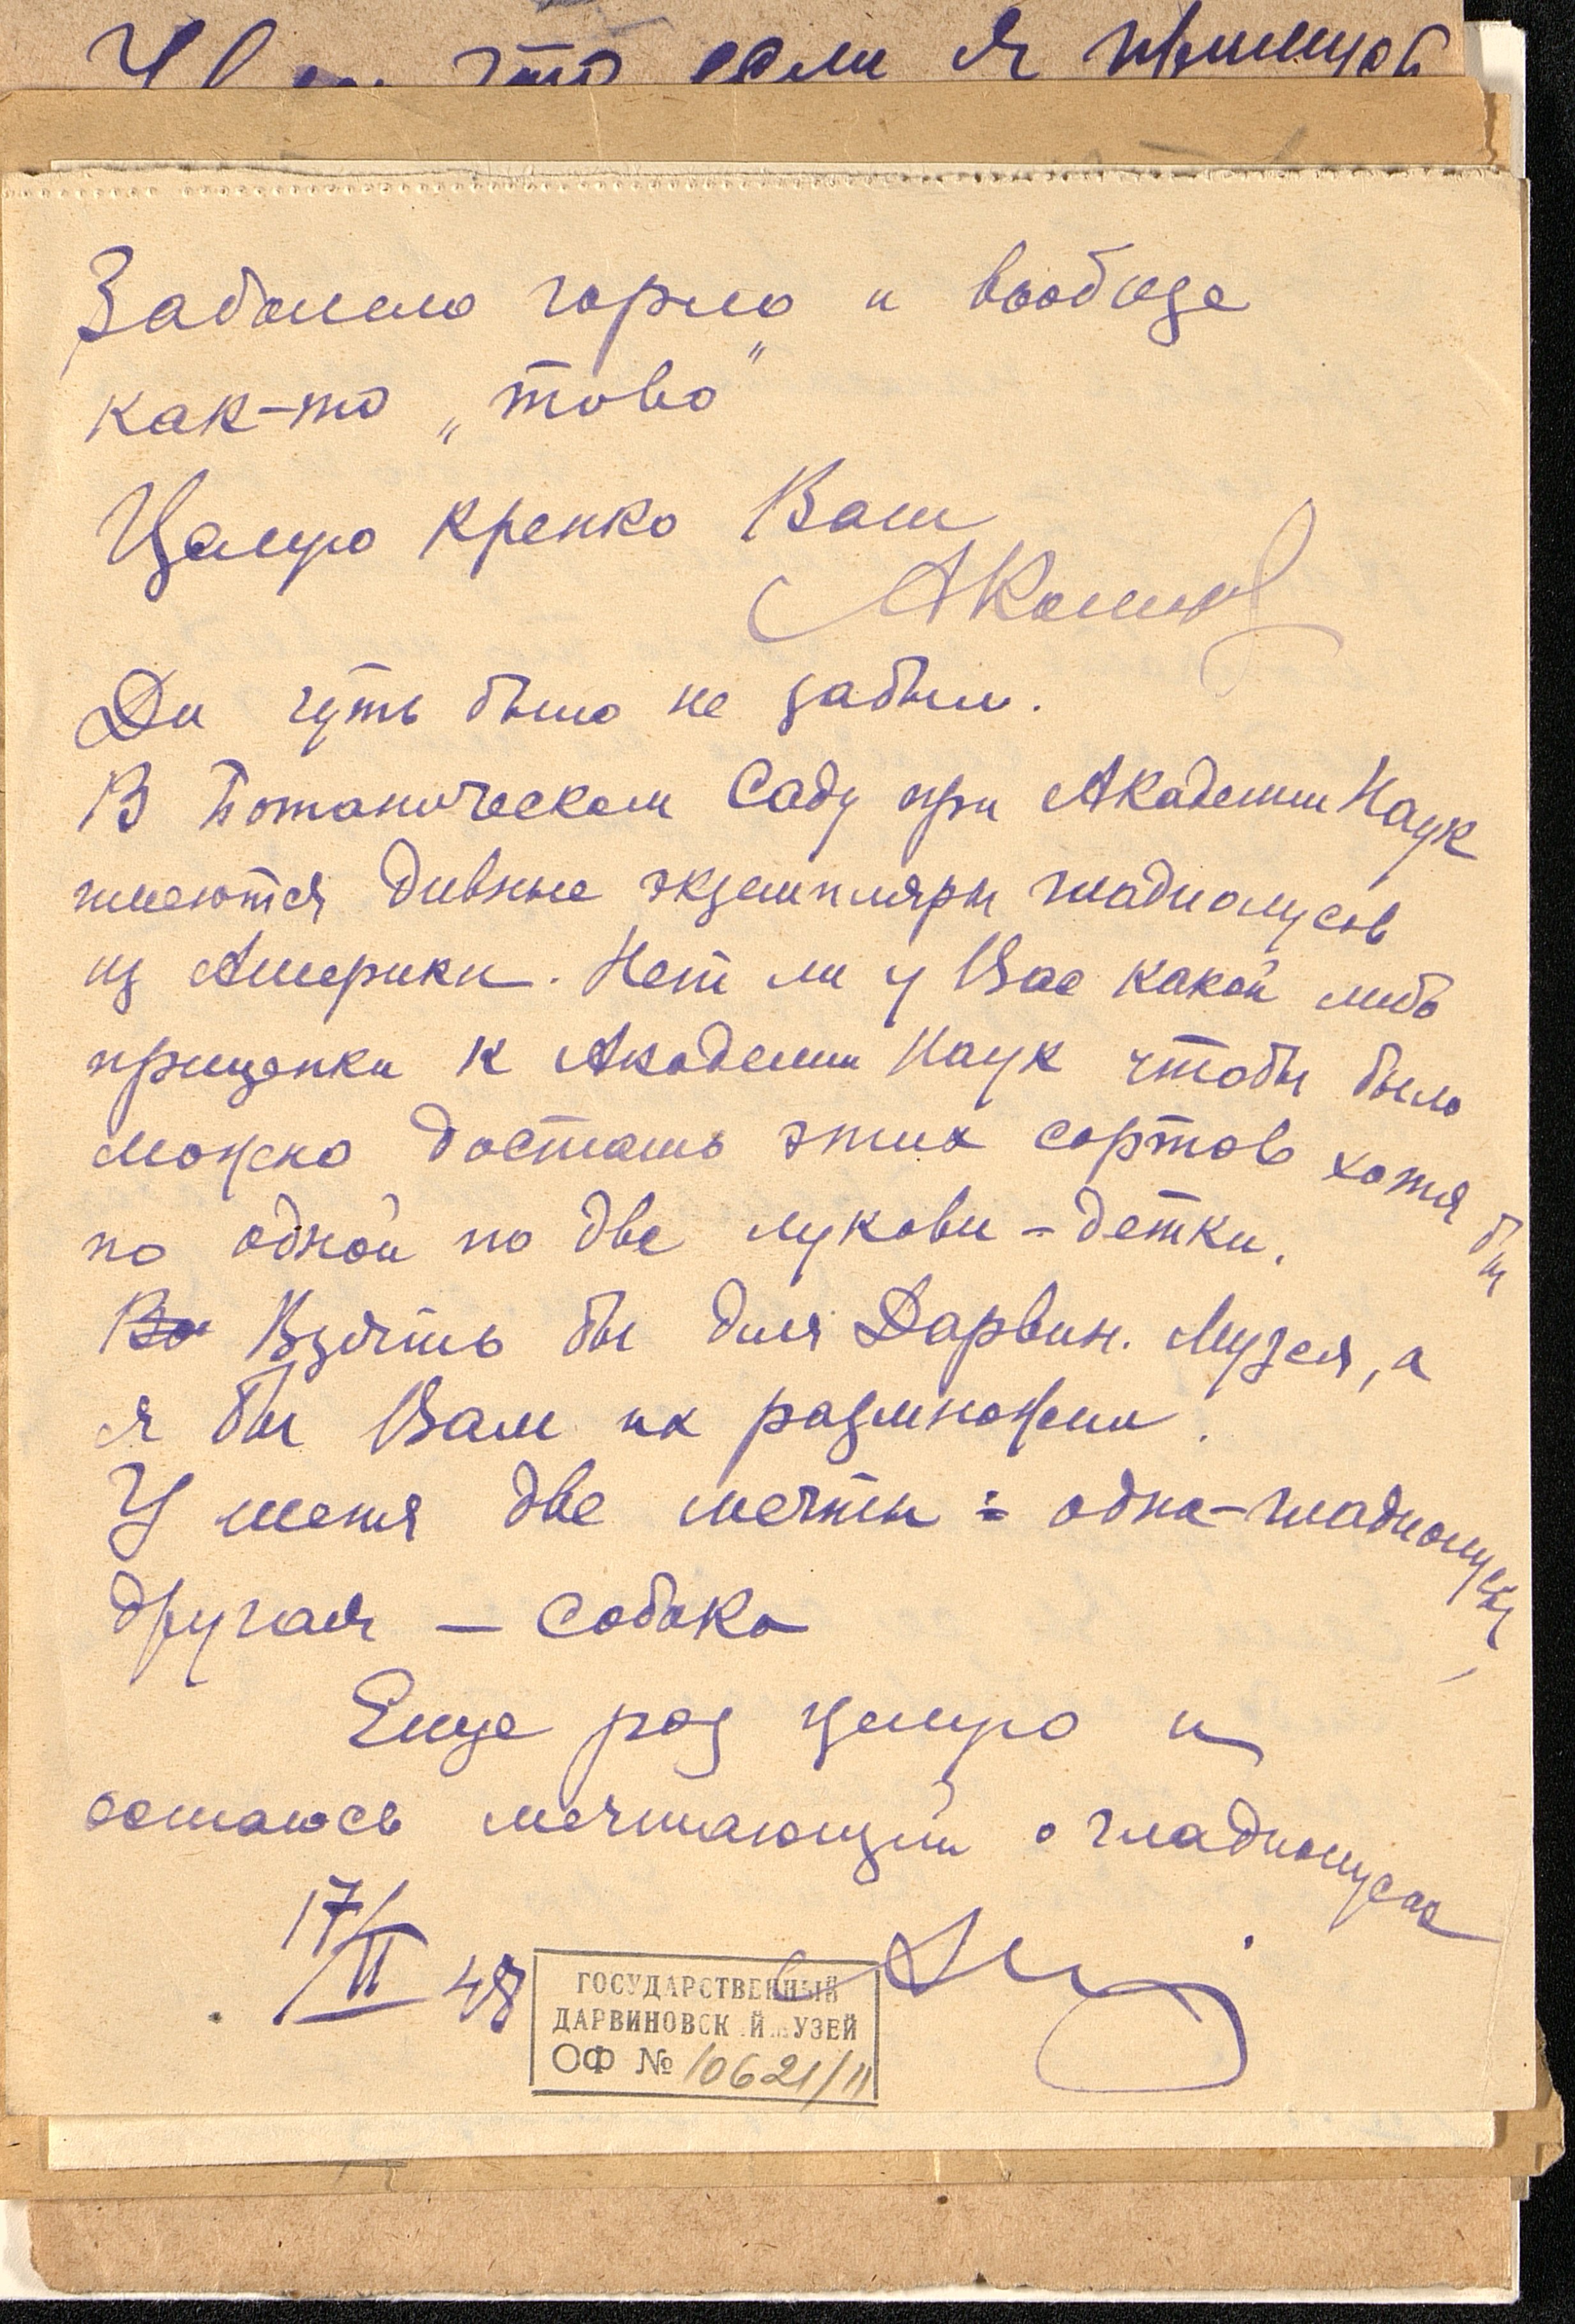 что если я
Заболело горло и вообще
как-то „тово"
Целую крепко Ваш
Да чуть было не забыл.
В Ботаническом Саду при Академии Наук
имеются дивные экземпляры гладиолусов
из Америки. Нет ли у Вас какой либо
прицепки к Академии Наук чтобы было
можно достать этих сортов хотя бы
по одной по две лукови-детки.
Во Взять бы для Дарвин. Музея, а
я бы Вам их размножил.
У меня две мечты: одна-гладиолусы,
другая — собака
Еще раз целую и
остаюсь мечтающий о гладиолусах
17/II 48
ГОСУДАРСТВЕННЫЙ
ДАРВИНОВСК Й УЗЕЙ
ОФ № 10621/11